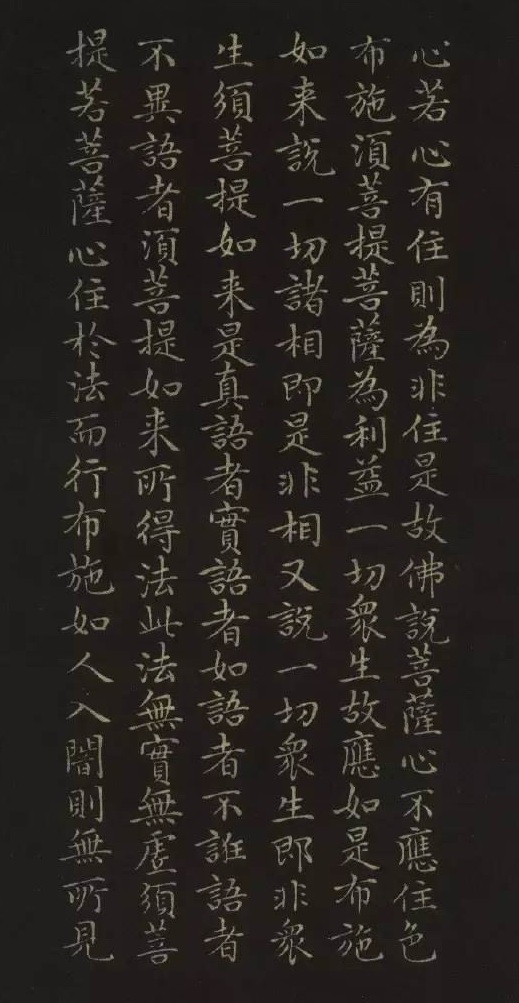 心若心有住則為非住是故佛說菩薩心不應住色
布施湏菩提菩薩為利益一切衆生故應如是布施
如来說一切諸相即是非相又說一切衆生即非衆
生須菩提如来是真語者實語者如語者不誑語者
不異語者湏菩提如来所得法此法無實無虛須菩
提若菩薩心住於法而行布施如人入闇則無所見